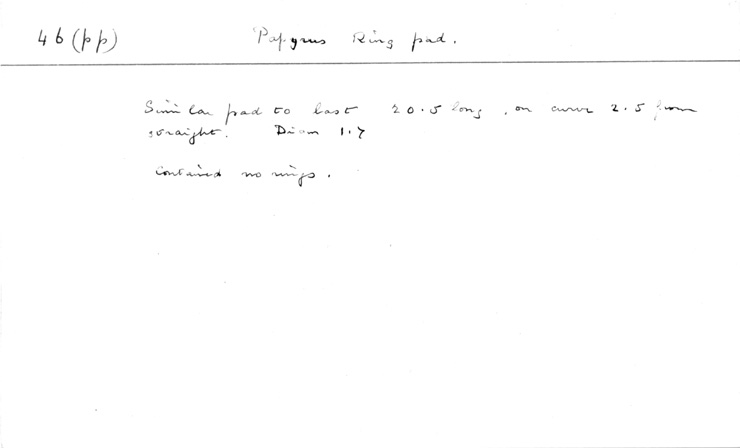 46 (pp) Papyrus Ring pad.
Similar pad to last 20.5 long, on curve 2.5 from
straight. Diam 1.7
Contained no rings.